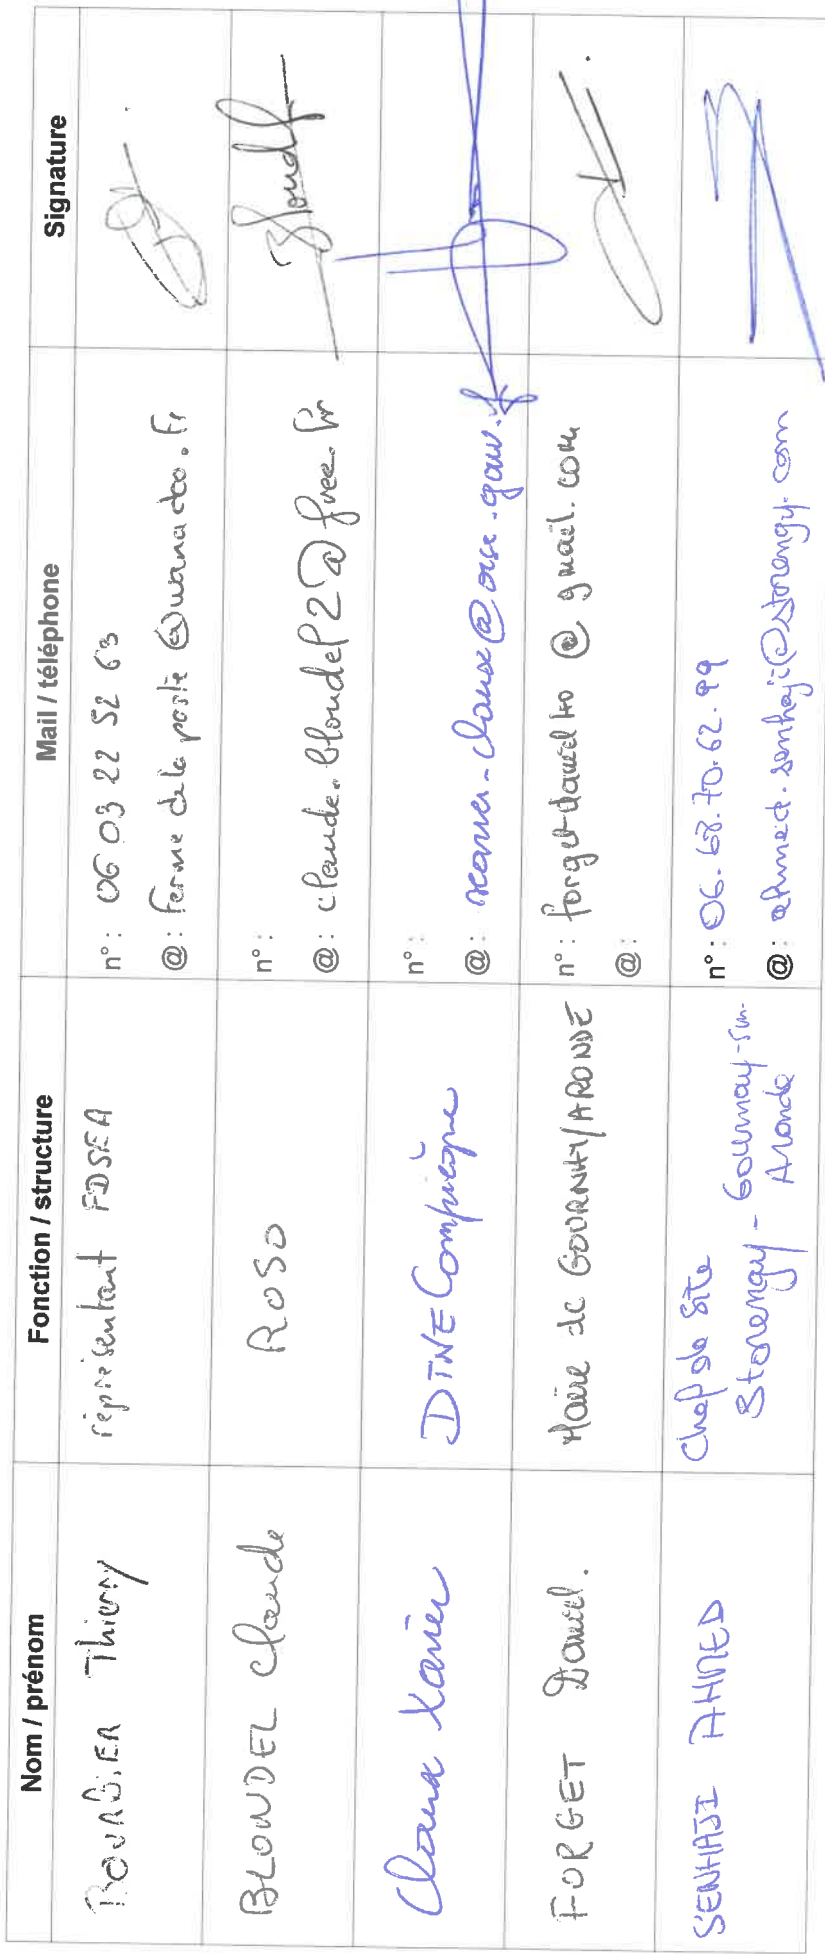 Nom / prénom
Fonction / structure
Mail / téléphone
Signature
BOURBIER Thierry
représentant FDSEA
n° : 06 03 22 52 63
@ : ferme de la poste @wanadoo.fr
BLONDEL Claude
ROSO
n° :
@ : claude.blondel2@free.fr
Blondel
Claux Xavier
n° :
@ : xavier-claux@oise.gouv.fr
FORGET Daniel.
Maire de GOURNAY/ARONDE
n° : @ gmail.com
@ :
SENHAJI AHMED
Chef de Site
Storengy - Gournay-sur-
Aronde
n° : 06.68.70.62.99
@ : ahmed.senhaji@storengy.com